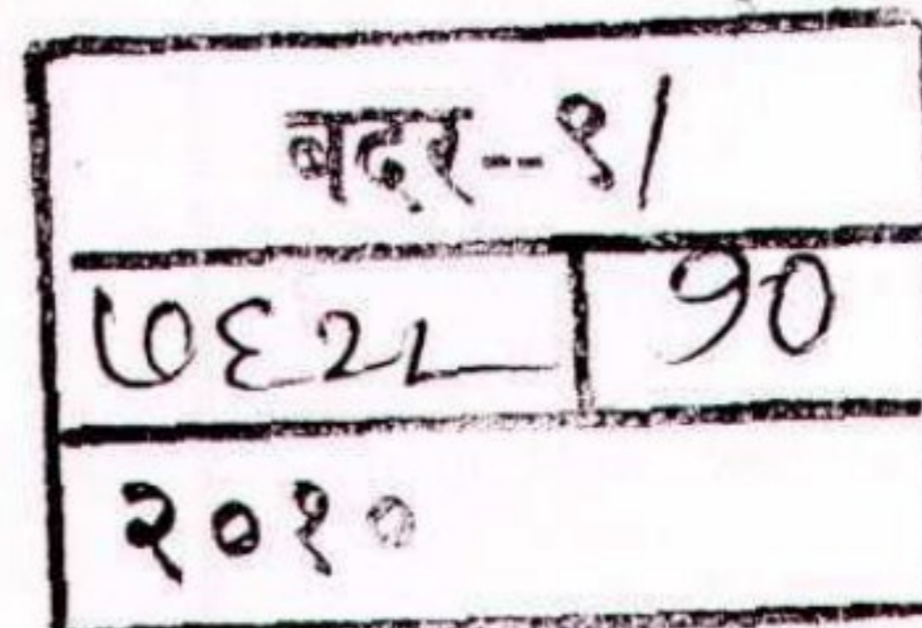 बदर--१/
७६२८ १०
२०१०